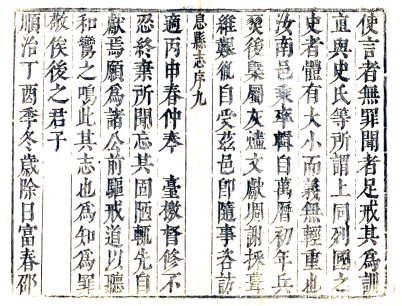 使言者無罪聞者足戒其為訓
直與史氏等所謂上同列國之
史者體有大小而義無輕重也
汝南邑乘率輯自萬曆初年兵
燹後槩蜀灰燼文獻凋謝採葺
維艱亂自受茲邑卽隨事咨訪
息縣志序九
適丙申春仲奉 臺檄督修不
忍終棄所聞忘其固陋輒先自
獻焉願為諸公前驅戒道以聽
和鸞之鳴此其志也為知為罪
敬俟後之君子
順治丁酉季冬歲除日富春邵